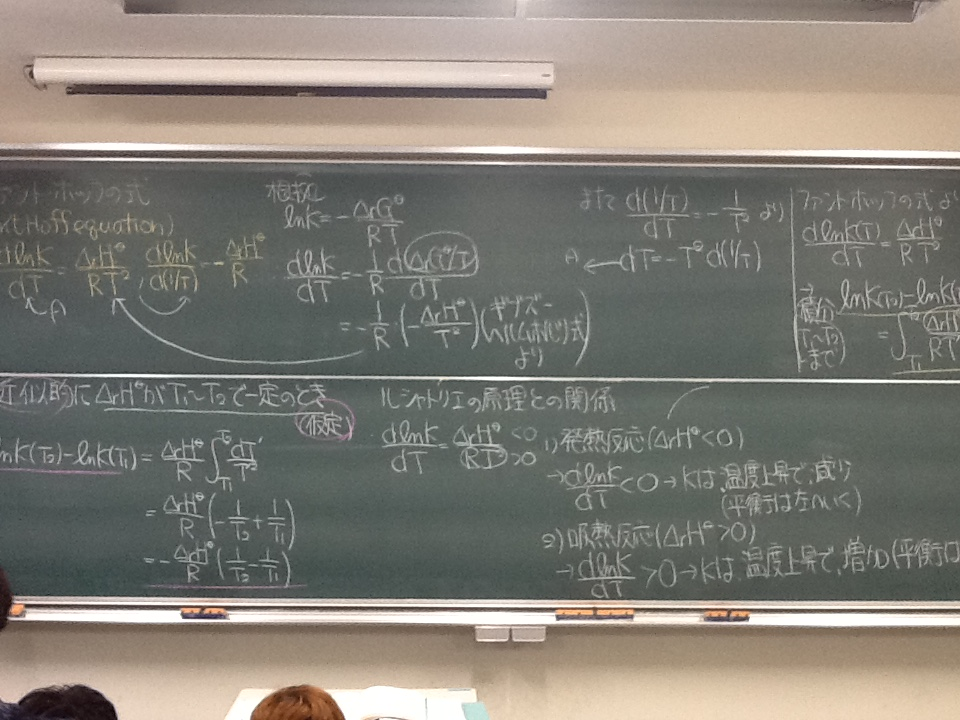 ファントホッフの式
(van't Hoff equation)
dlnK/dT = ΔrH°/RT², dlnK/d(1/T) = -ΔrH°/R
A
根拠は
lnK = -ΔrG°/RT
dlnK/dT = -1/R d(ΔrG°/T)/dT
= -1/R・(-ΔrH°/T²) (ギブズ-ヘルムホルツ式より)
また d(1/T)/dT = -1/T² より
A ← dT = -T² d(1/T)
ファントホッフの式より
dlnK(T)/dT = ΔrH°/RT²
→
積分
T₁~T₂
まで
lnK(T₂)-lnK(
= ∫T₁ ΔrH°/RT²
近似的にΔrH°がT₁~T₂で一定のとき
仮定
lnK(T₂)-lnK(T₁) = ΔrH°/R ∫T₁T₂ dT/T²
= ΔrH°/R (-1/T₂+1/T₁)
= -ΔrH°/R (1/T₂-1/T₁)
ルシャトリエの原理との関係
dlnK/dT = ΔrH°/RT² <0 >0
1) 発熱反応(ΔrH°<0)
→ dlnK/dT <0 → Kは温度上昇で、減り
(平衡は左へいく)
2) 吸熱反応(ΔrH°>0)
→ dlnK/dT >0 → Kは温度上昇で、増加(平衡は